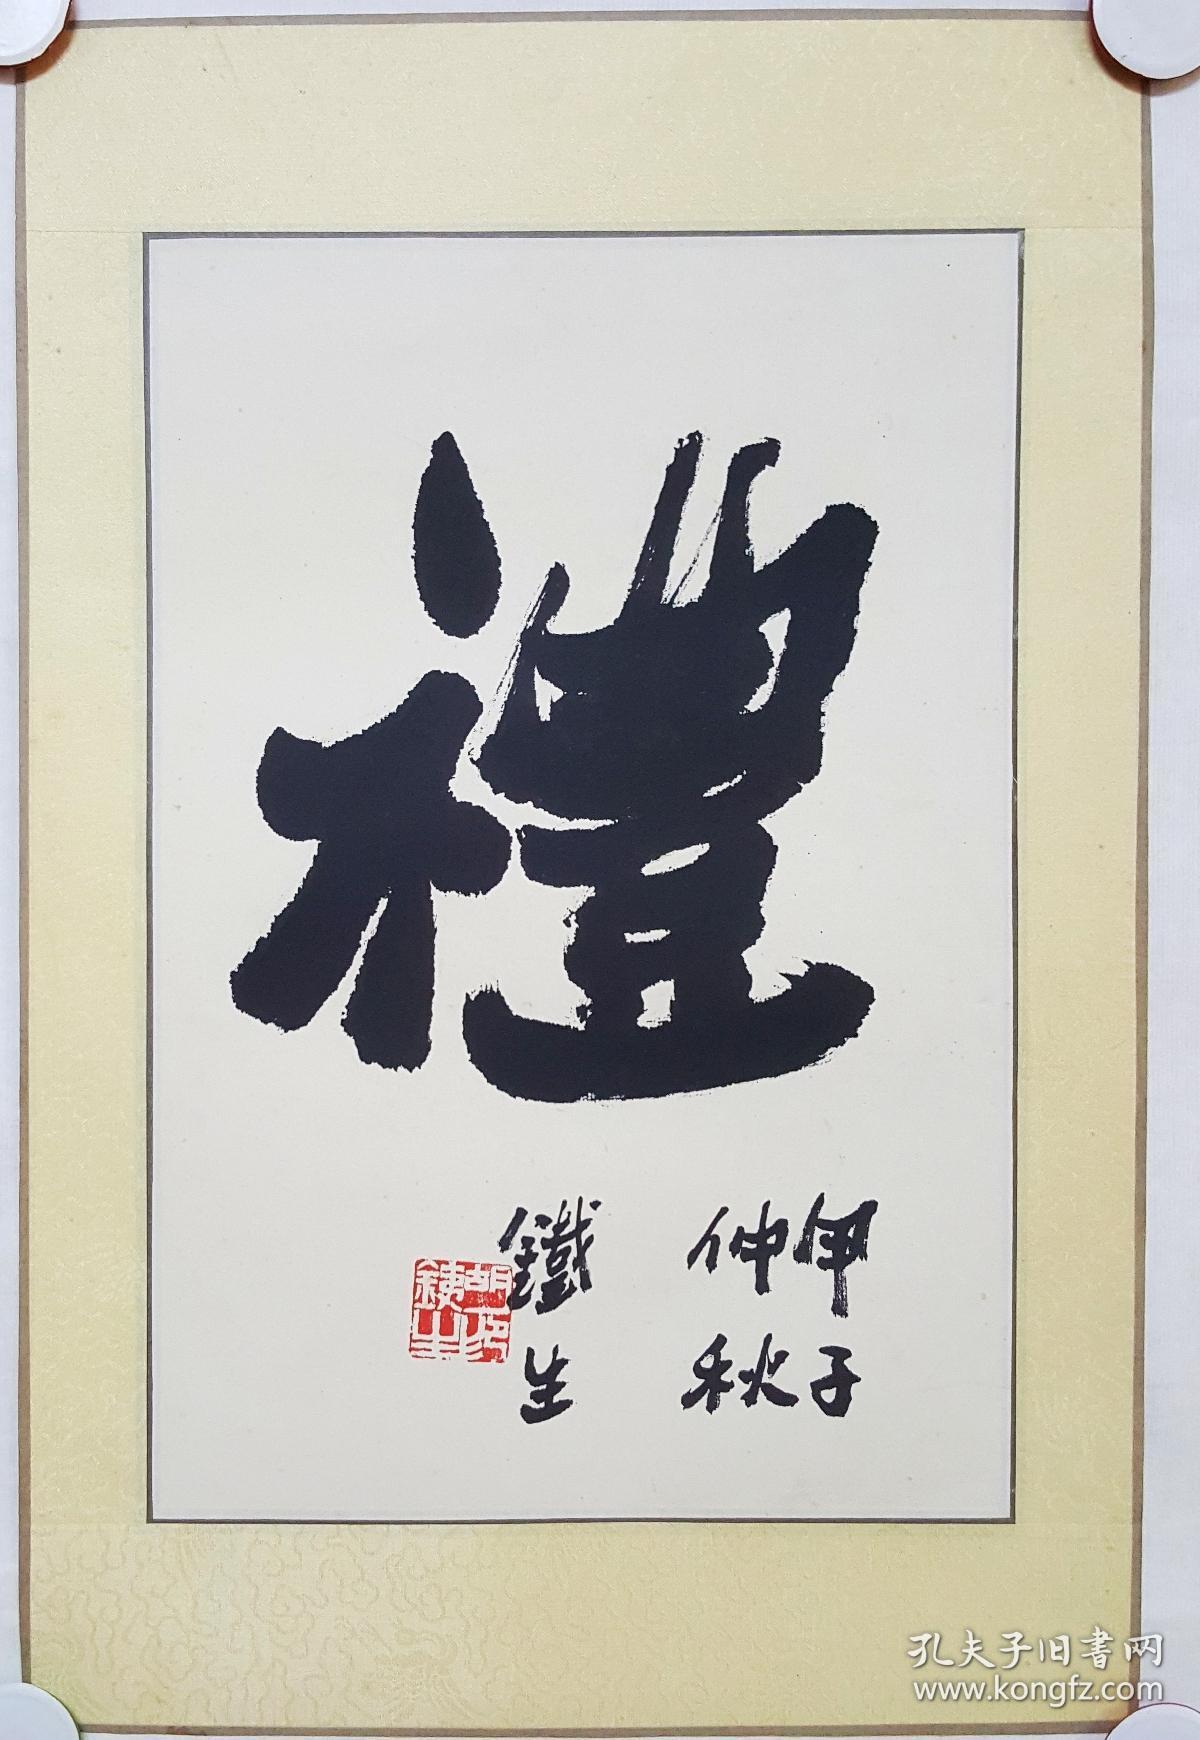 禮
甲子
仲秋
鐵生
胡鐵生印
孔夫子旧書网
www.kongfz.com